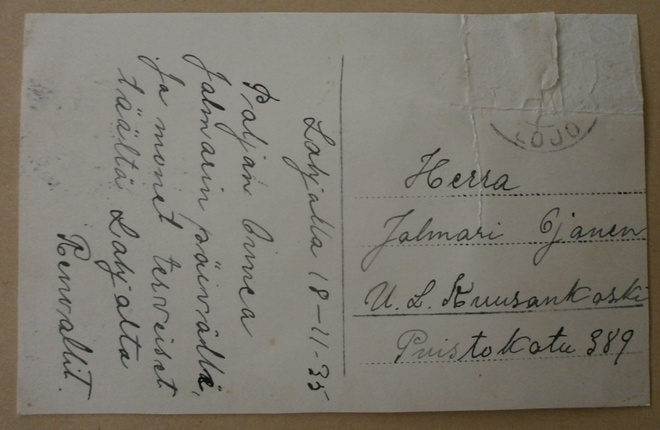 Lohjalla 18-11-35
Paljon Onnea
Jalmarin päivällä,
Ja monet terveiset
täältä Lohjalta
Renvallit.
LOJO
Herra
Jalmari Ojanen
U.L. Kuusankoski
Puistokatu 389